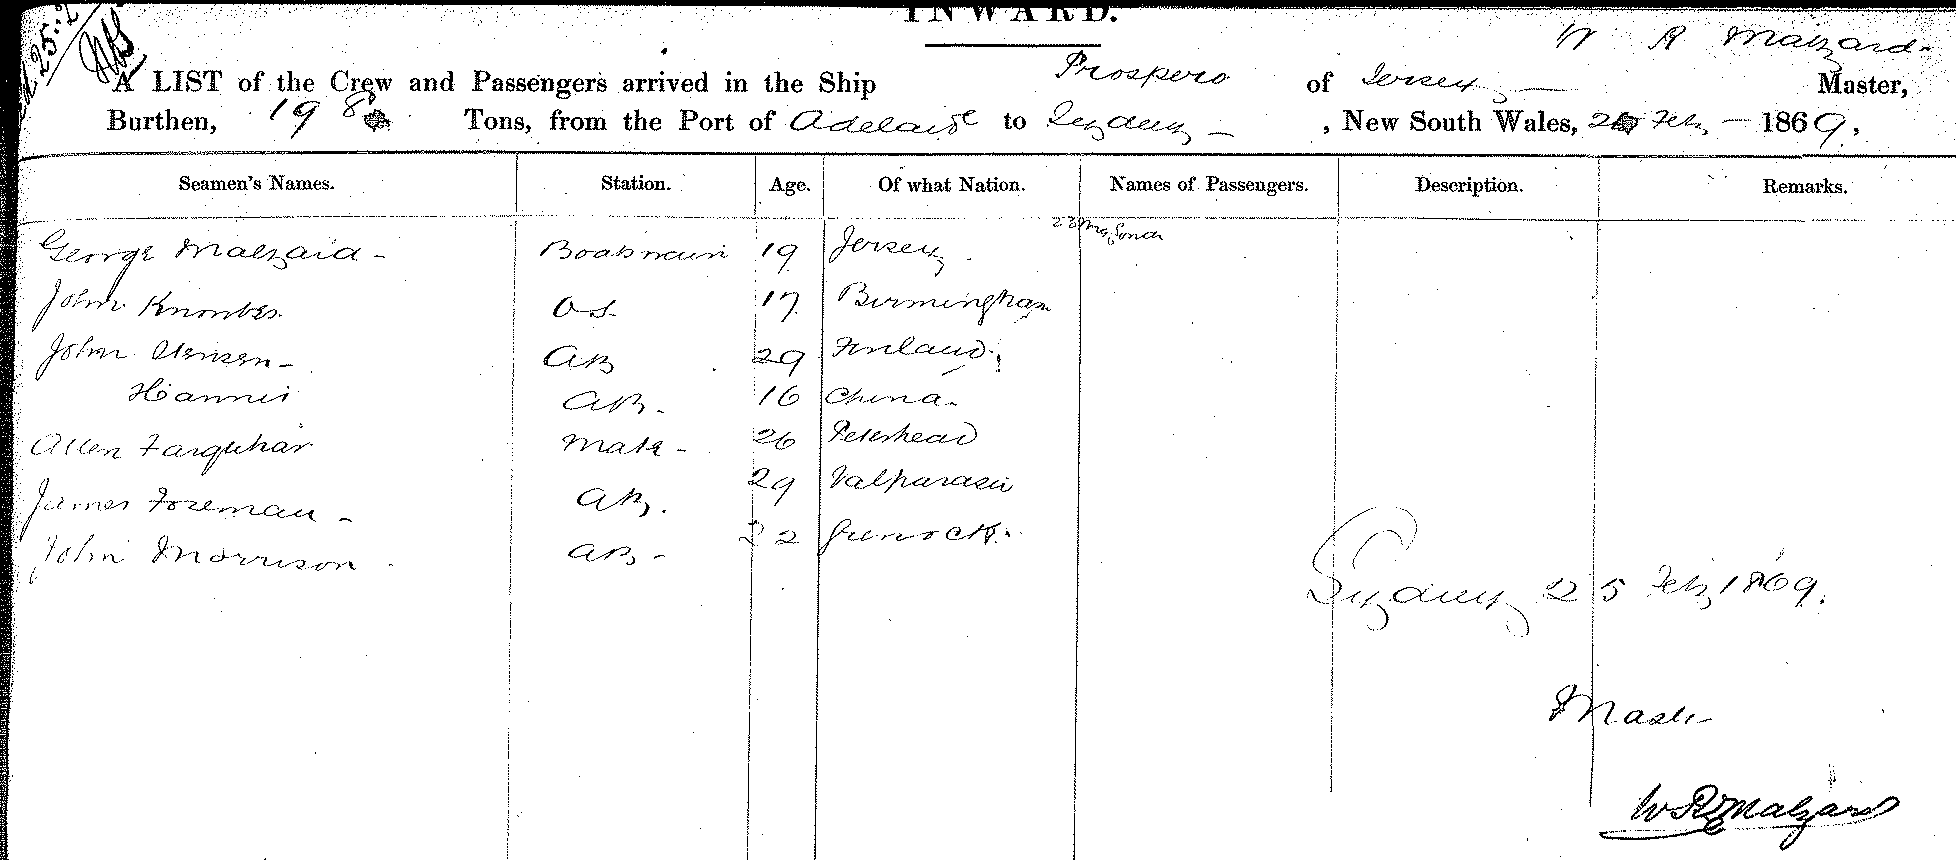 INWARD.
W R Malzard
A LIST of the Crew and Passengers arrived in the Ship Prospero of Jersey Master,
Burthen, 198 Tons, from the Port of Adelaide to Sydney , New South Wales, 25 Feby 1869.
Seamen's Names. Station. Age. Of what Nation. Names of Passengers. Description. Remarks.
George Malzard Boatswain 19 Jersey
John OS 17 Birmingham
John AB 29 Finland
Hannis AB 16 China
Allen Farquhar Mate 26 Peterhead
James Foreman AB. 29 Valparaso
John Morrison AB 22 Grenock.
Sydney 25 Feby 1869.
Master
W R Malzard